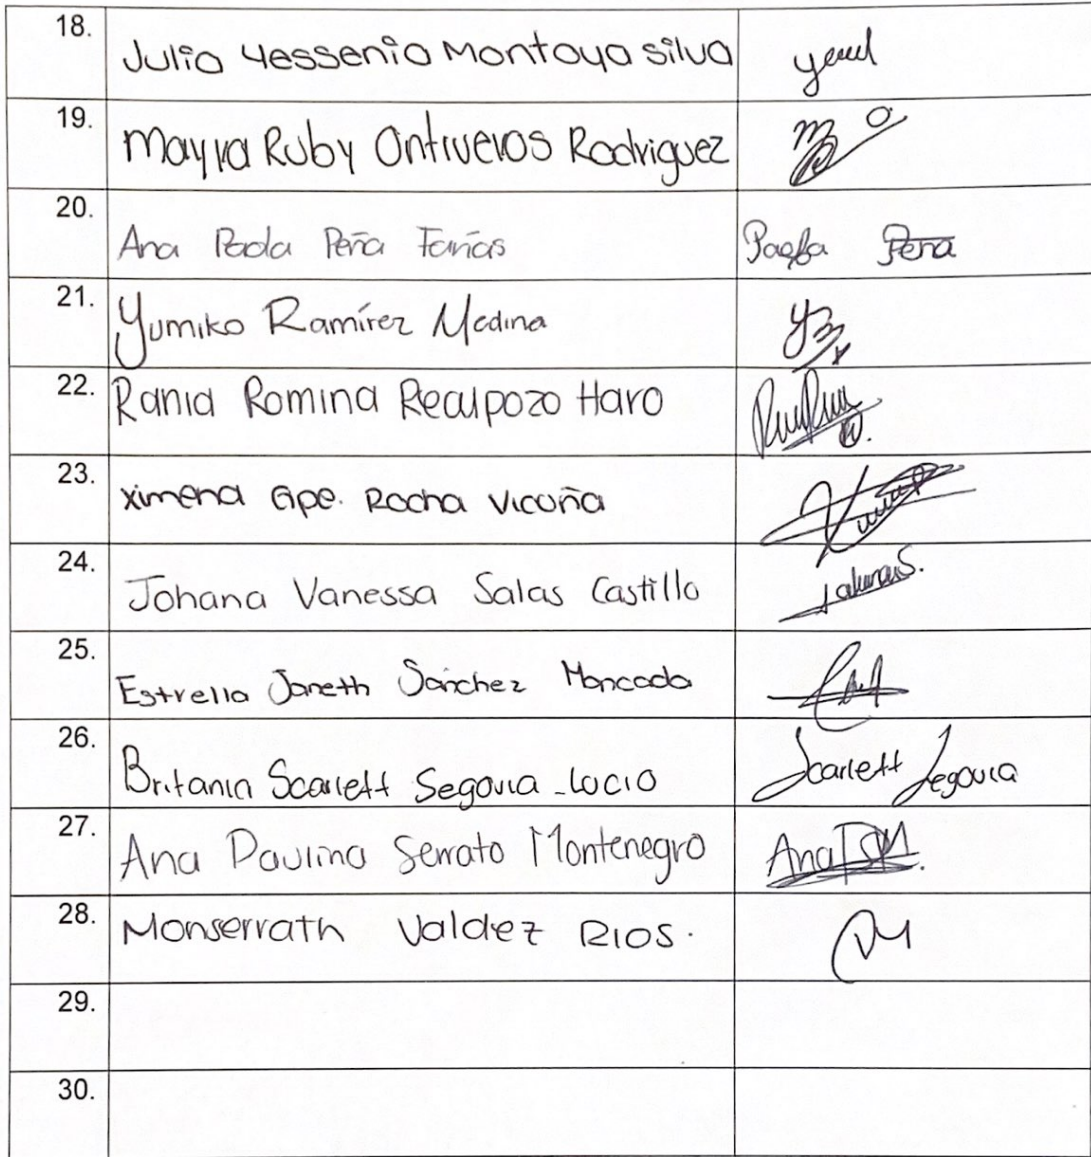 18. Julia Yessenia Montoya Silva yem
19. Mayra Ruby Ontiveros Rodriguez
20. Ana Paola Peña Farías Paola Peña
21. Yumiko Ramírez Medina
22. Rania Romina Recalpozo Haro
23. Ximena Gpe. Rocha Vicuña
24. Johana Vanessa Salas Castillo Johana S.
25. Estrella Janeth Sánchez Moncada
26. Britania Scarlett Segovia Lucio Scarlett Segovia
27. Ana Paulina Serrato Montenegro Ana PSM.
28. Monserrath Valdez Rios.
29.
30.